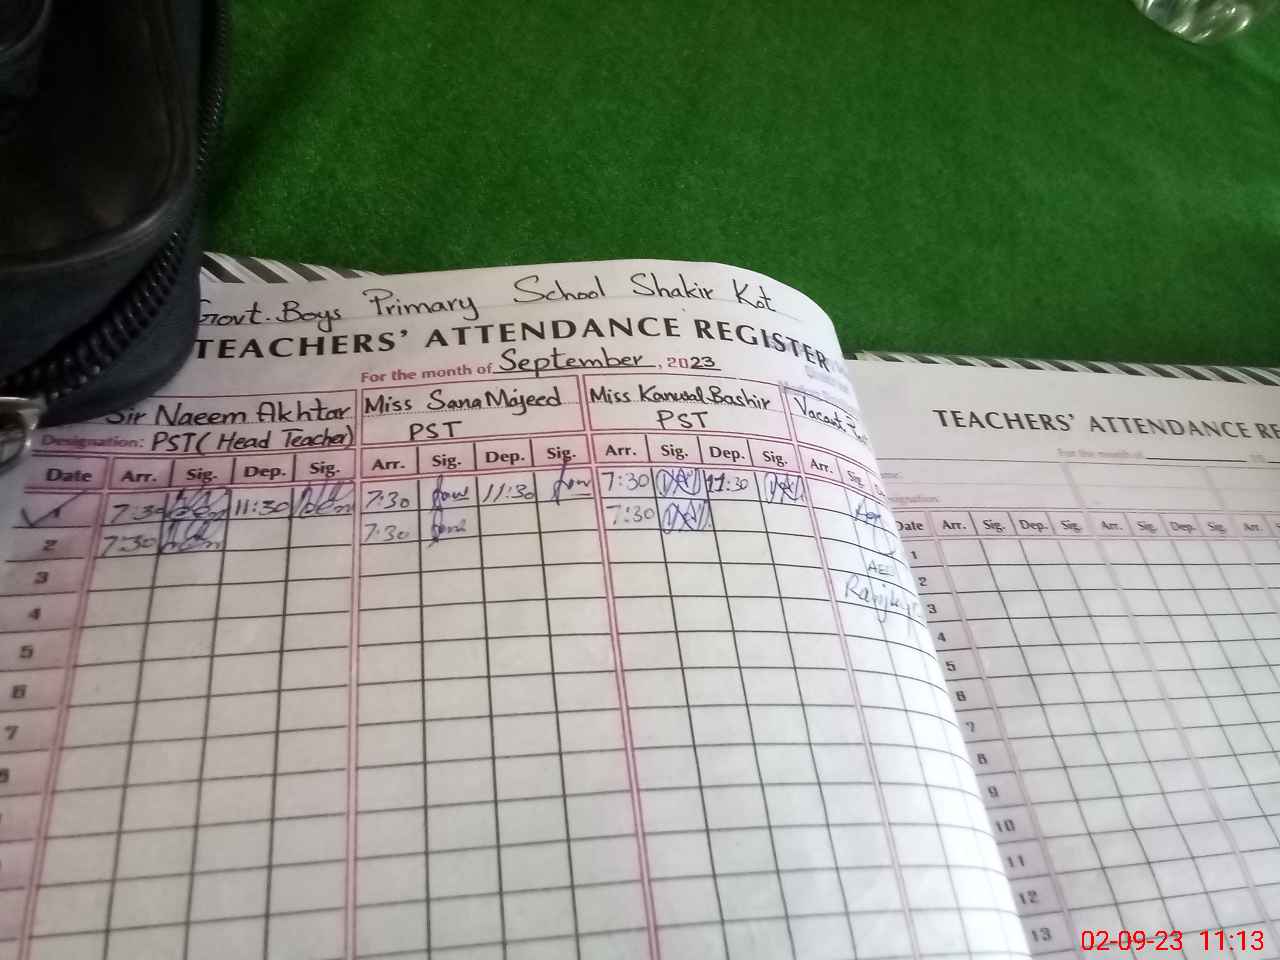 Govt. Boys Primary School Shakir Kot
TEACHERS' ATTENDANCE REGISTER
For the month of September, 2023
Sir Naeem Akhtar Miss Sana Majeed Miss Kanwal Bashir Vacant
Designation: PST (Head Teacher) PST PST
Date Arr. Sig. Dep. Sig. Arr. Sig. Dep. Sig. Arr. Sig. Dep. Sig. Arr. Sig.
7:30 11:30 7:30 11:30 7:30 11:30
2 7:30 7:30 7:30
3
4
5
6
7
8
TEACHERS' ATTENDANCE RE
For the month of
Date Arr. Sig. Dep. Sig. Arr. Sig. Dep. Sig. Arr.
1
2
3
4
5
6
7
8
9
10
11
12
13
02-09-23 11:13